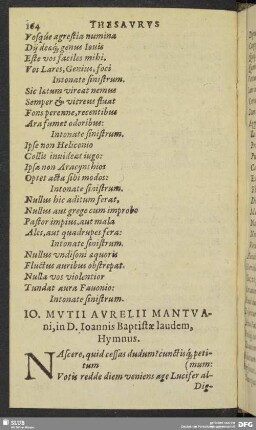 164 THESAVRVS
Vosq́ue agrestia numina
Dij deaq́; genus Iouis
Este vos faciles mihi.
Vos Lares, Genius, foci
Intonate sinistrum.
Sic latum vireat nemus
Semper & vitreus fluat
Fons perenne, recentibus
Ara fumet odoribus:
Intonate sinistrum.
Ipse non Heliconio
Collis inuideat iugo:
Ipsæ non Aracynthios
Optet acta sibi modos:
Intonate sinistrum.
Nullus hic aditum ferat,
Nullus aut grege cum improbo
Pastor impius, aut mala
Ales, aut quadrupes fera:
Intonate sinistrum.
Nullus vndisoni aquoris
Fluctus auribus obstrepat.
Nulla vos violentior
Tundat aura Fauonio:
Intonate sinistrum.
IO. MVTII AVRELII MANTVA-
ni, in D. Ioannis Baptistæ laudem,
Hymnus.
NAscere, quid cessas dudum? cunctisq́; peti-
tum (mum:
Votis redde diem veniens age Lucifer al-
Dig-
SLUB
DFG